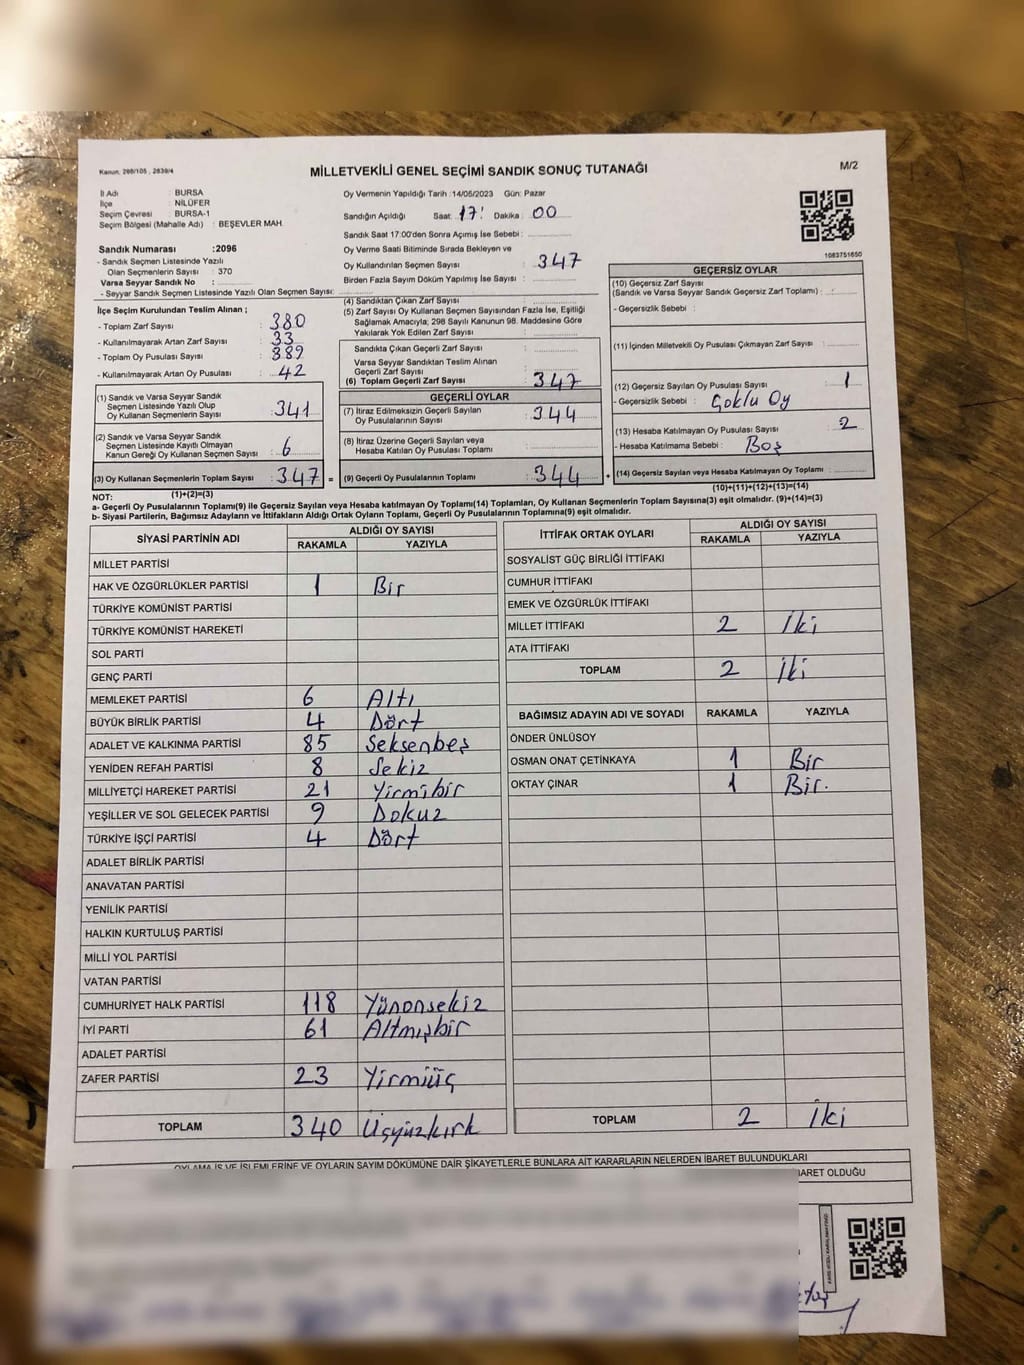 Kanun, 298/105 , 2839/4
MİLLETVEKİLİ GENEL SEÇİMİ SANDIK SONUÇ TUTANAĞI
M/2
İl Adı : BURSA
İlçe : NİLÜFER
Seçim Çevresi : BURSA-1
Seçim Bölgesi (Mahalle Adı) : BEŞEVLER MAH.
Sandık Numarası :2096
- Sandık Seçmen Listesinde Yazılı
Olan Seçmenlerin Sayısı : 370
Varsa Seyyar Sandık No :
- Seyyar Sandık Seçmen Listesinde Yazılı Olan Seçmen Sayısı:
Oy Vermenin Yapıldığı Tarih :14/05/2023 Gün: Pazar
Sandığın Açıldığı Saat: 17: Dakika : 00
Sandık Saat 17:00'den Sonra Açılmış İse Sebebi :
Oy Verme Saati Bitiminde Sırada Bekleyen ve
Oy Kullandırılan Seçmen Sayısı : 347
Birden Fazla Sayım Döküm Yapılmış İse Sayısı :
1083751650
İlçe Seçim Kurulundan Teslim Alınan ;
- Toplam Zarf Sayısı : 380
- Kullanılmayarak Artan Zarf Sayısı : 33
- Toplam Oy Pusulası Sayısı : 389
- Kullanılmayarak Artan Oy Pusulası : 42
(1) Sandık ve Varsa Seyyar Sandık
Seçmen Listesinde Yazılı Olup
Oy Kullanan Seçmenlerin Sayısı : 341
(2) Sandık ve Varsa Seyyar Sandık
Seçmen Listesinde Kayıtlı Olmayan
Kanun Gereği Oy Kullanan Seçmen Sayısı : 6
(3) Oy Kullanan Seçmenlerin Toplam Sayısı : 347 =
(1)+(2)=(3)
(4) Sandıktan Çıkan Zarf Sayısı :
(5) Zarf Sayısı Oy Kullanan Seçmen Sayısından Fazla İse, Eşitliği
Sağlamak Amacıyla; 298 Sayılı Kanunun 98. Maddesine Göre
Yakılarak Yok Edilen Zarf Sayısı :
Sandıkta Çıkan Geçerli Zarf Sayısı :
Varsa Seyyar Sandıktan Teslim Alınan
Geçerli Zarf Sayısı :
(6) Toplam Geçerli Zarf Sayısı : 347
GEÇERLİ OYLAR
(7) İtiraz Edilmeksizin Geçerli Sayılan
Oy Pusulalarının Sayısı : 344
(8) İtiraz Üzerine Geçerli Sayılan veya
Hesaba Katılan Oy Pusulası Toplamı :
(9) Geçerli Oy Pusulalarının Toplamı : 344 +
GEÇERSİZ OYLAR
(10) Geçersiz Zarf Sayısı
(Sandık ve Varsa Seyyar Sandık Geçersiz Zarf Toplamı) :
- Geçersizlik Sebebi :
(11) İçinden Milletvekili Oy Pusulası Çıkmayan Zarf Sayısı :
(12) Geçersiz Sayılan Oy Pusulası Sayısı : 1
- Geçersizlik Sebebi : Çoklu Oy
(13) Hesaba Katılmayan Oy Pusulası Sayısı : 2
- Hesaba Katılmama Sebebi : Boş
(14) Geçersiz Sayılan veya Hesaba Katılmayan Oy Toplamı :
(10)+(11)+(12)+(13)=(14)
NOT:
a- Geçerli Oy Pusulalarının Toplamı(9) ile Geçersiz Sayılan veya Hesaba Katılmayan Oy Toplamı(14) Toplamları, Oy Kullanan Seçmenlerin Toplam Sayısına(3) eşit olmalıdır. (9)+(14)=(3)
b- Siyasi Partilerin, Bağımsız Adayların ve İttifakların Aldığı Ortak Oyların Toplamı, Geçerli Oy Pusulalarının Toplamına(9) eşit olmalıdır.
SİYASİ PARTİNİN ADI ALDIĞI OY SAYISI
RAKAMLA YAZIYLA
MİLLET PARTİSİ
HAK VE ÖZGÜRLÜKLER PARTİSİ 1 Bir
TÜRKİYE KOMÜNİST PARTİSİ
TÜRKİYE KOMÜNİST HAREKETİ
SOL PARTİ
GENÇ PARTİ
MEMLEKET PARTİSİ 6 Altı
BÜYÜK BİRLİK PARTİSİ 4 Dört
ADALET VE KALKINMA PARTİSİ 85 Seksenbeş
YENİDEN REFAH PARTİSİ 8 Sekiz
MİLLİYETÇİ HAREKET PARTİSİ 21 Yirmibir
YEŞİLLER VE SOL GELECEK PARTİSİ 9 Dokuz
TÜRKİYE İŞÇİ PARTİSİ 4 Dört
ADALET BİRLİK PARTİSİ
ANAVATAN PARTİSİ
YENİLİK PARTİSİ
HALKIN KURTULUŞ PARTİSİ
MİLLİ YOL PARTİSİ
VATAN PARTİSİ
CUMHURİYET HALK PARTİSİ 118 Yünonsekiz
İYİ PARTİ 61 Altmışbir
ADALET PARTİSİ
ZAFER PARTİSİ 23 Yirmiüç
TOPLAM 340 Üçyüzkırk
İTTİFAK ORTAK OYLARI ALDIĞI OY SAYISI
RAKAMLA YAZIYLA
SOSYALİST GÜÇ BİRLİĞİ İTTİFAKI
CUMHUR İTTİFAKI
EMEK VE ÖZGÜRLÜK İTTİFAKI
MİLLET İTTİFAKI 2 İki
ATA İTTİFAKI
TOPLAM 2 İki
BAĞIMSIZ ADAYIN ADI VE SOYADI RAKAMLA YAZIYLA
ÖNDER ÜNLÜSOY
OSMAN ONAT ÇETİNKAYA 1 Bir
OKTAY ÇINAR 1 Bir.
TOPLAM 2 İki
OYLAMA İŞ VE İŞLEMLERİNE VE OYLARIN SAYIM DÖKÜMÜNE DAİR ŞİKAYETLERLE BUNLARA AİT KARARLARIN NELERDEN İBARET BULUNDUKLARI
BARET OLDUĞU